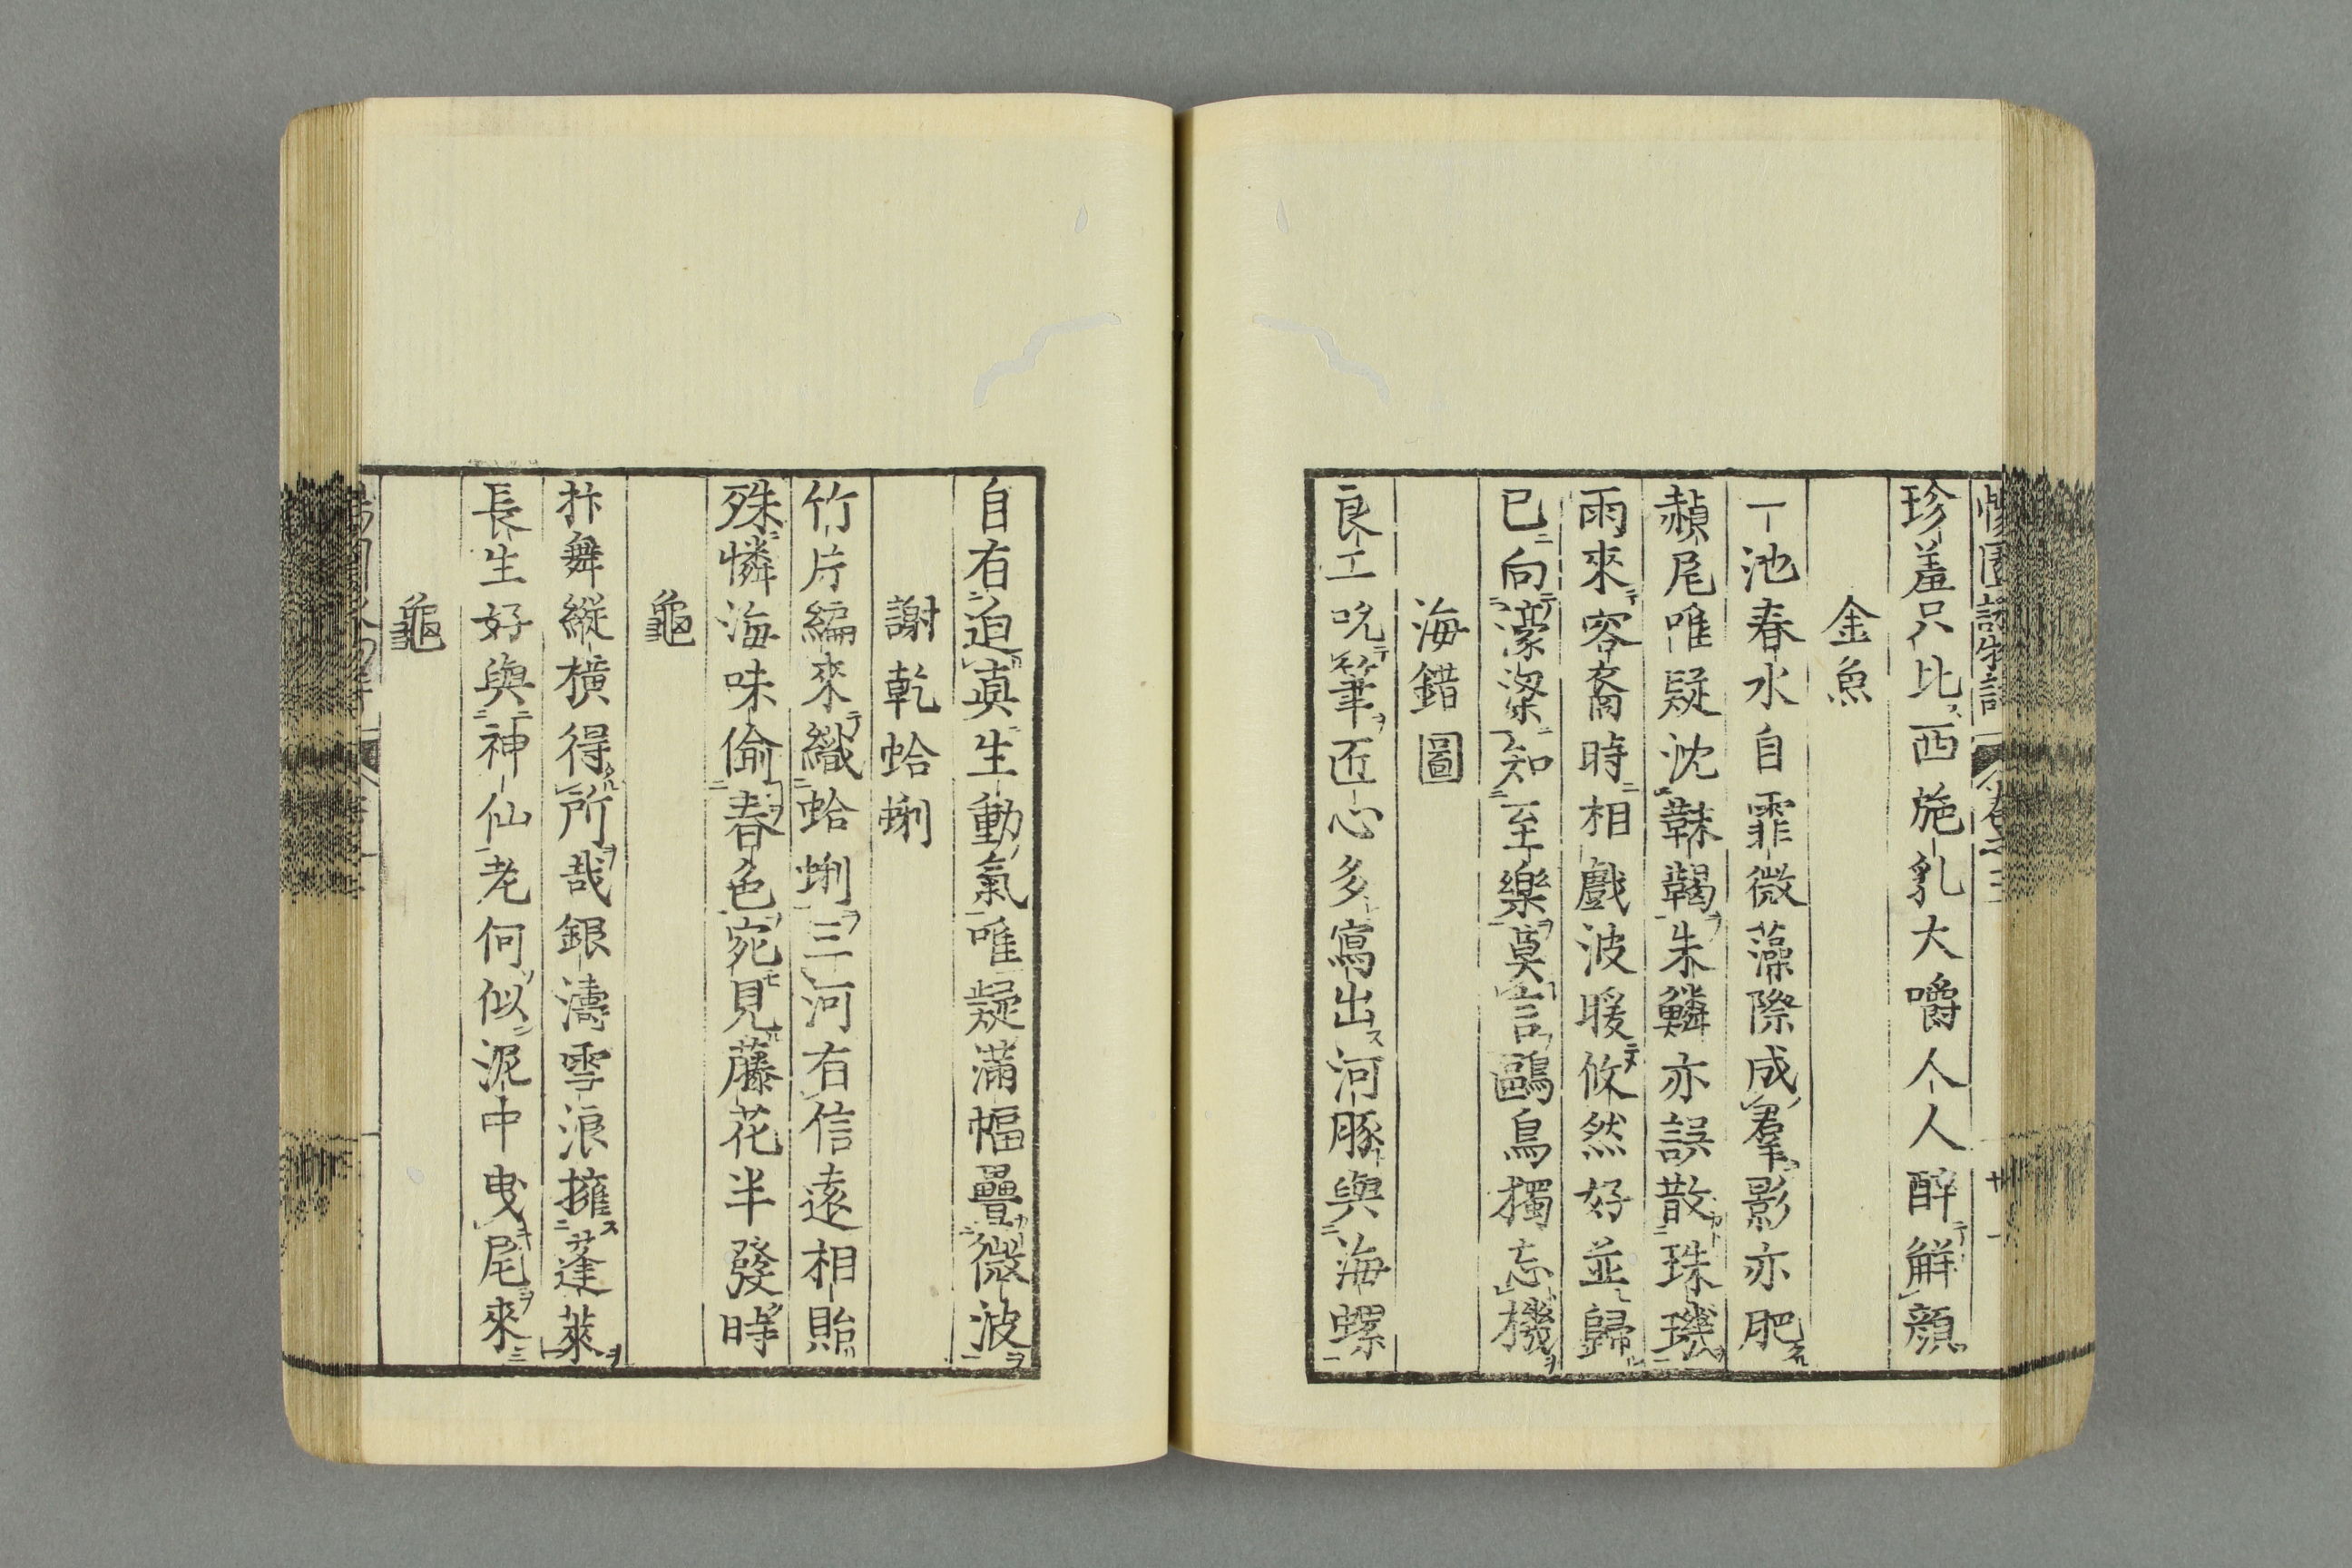 珍羞只比西施乳大嚼人人醉解顔
金魚
一池春水自霏微藻際成羣影亦肥
赬尾唯疑沈靺鞨朱鱗亦誤散珠璣
雨來容裔時相戲波暖悠然好並歸
已向濠梁知至樂莫言鷗鳥獨忘機
海錯圖
良工吮筆匠心多寫出河豚與海螺
自有迫真生動氣唯疑滿幅疊微波
謝乾蛤蜊
竹片編來織蛤蜊三河有信遠相貽
殊憐海味偷春色宛見藤花半發時
龜
抃舞縱橫得所哉銀濤雪浪擁蓬萊
長生好與神仙老何似泥中曳尾來
龜